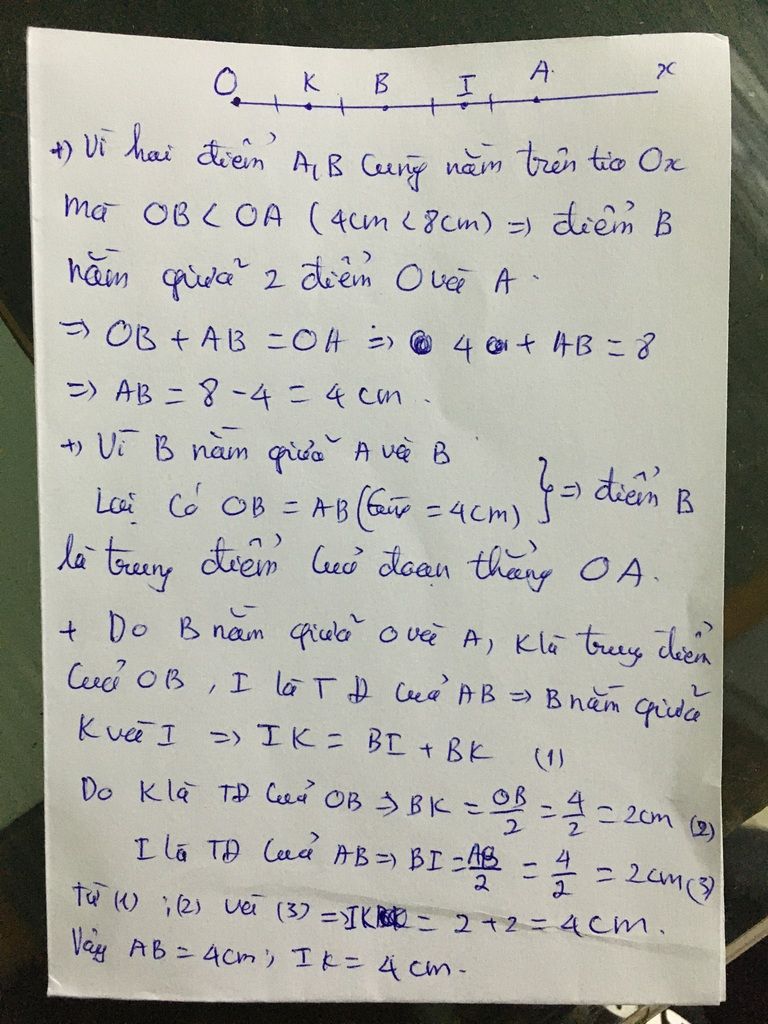 O K B I A x
+) Vì hai điểm A, B cùng nằm trên tia Ox
mà OB < OA (4cm < 8cm) => điểm B
nằm giữa 2 điểm O và A.
=> OB + AB = OA => 4 + AB = 8
=> AB = 8 - 4 = 4 cm.
+) Vì B nằm giữa A và B
Lại có OB = AB (cùng = 4cm) } => điểm B
là trung điểm của đoạn thẳng OA.
+ Do B nằm giữa O và A, K là trung điểm
của OB, I là TĐ của AB => B nằm giữa
K và I => IK = BI + BK (1)
Do K là TĐ của OB => BK = OB/2 = 4/2 = 2cm (2)
I là TĐ của AB => BI = AB/2 = 4/2 = 2cm (3)
Từ (1) ; (2) và (3) => IK = 2 + 2 = 4 cm.
Vậy AB = 4cm; IK = 4 cm.